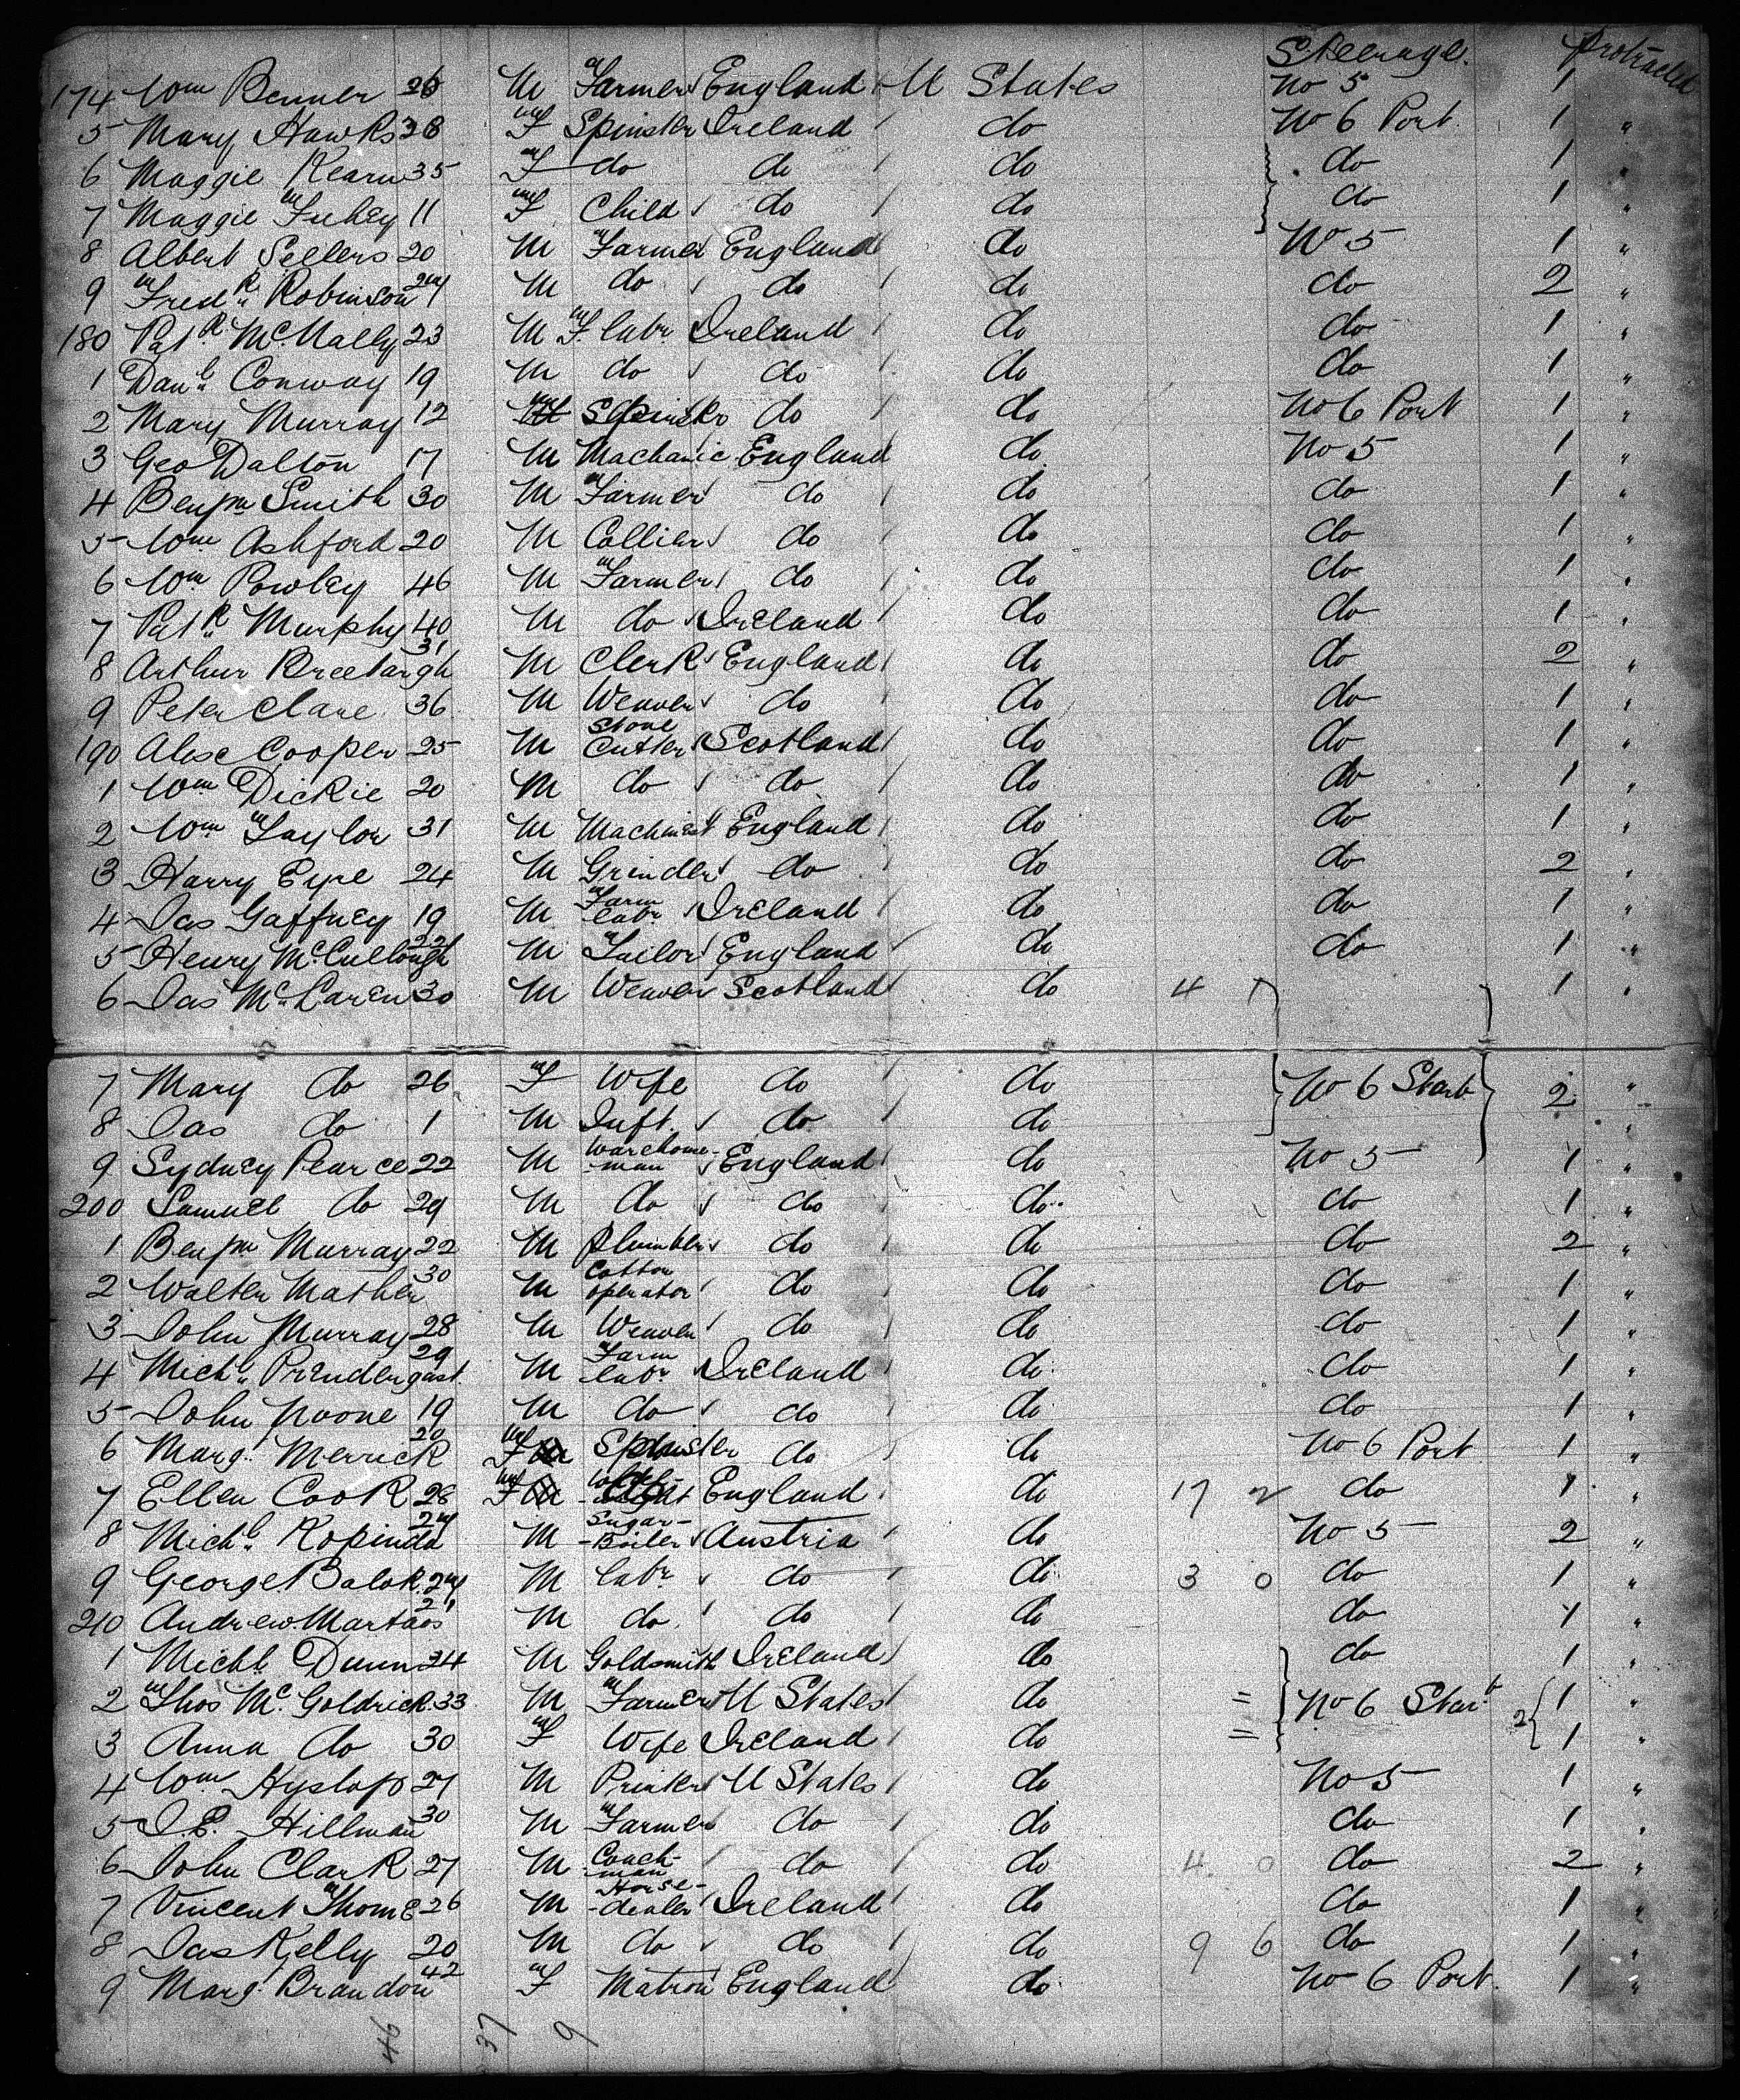 Steerage. Protracted
174 Wm Benner 26 M Farmer England U States No 5 1
5 Mary Hawks 28 F Spinster Ireland do No 6 Port 1 "
6 Maggie Kearn 35 F do do do do 1 "
7 Maggie Fuhey 11 F Child do do do 1 "
8 Albert Sellers 20 M Farmer England do No 5 1 "
9 Fredk Robinson 24 M do do do do 2 "
180 Patk McNally 23 M F. labr Ireland do do 1 "
1 Danl Conway 19 M do do do do 1 "
2 Mary Murray 12 Spinster do do No 6 Port 1 "
3 Geo Dalton 17 M Machanic England do No 5 1 "
4 Benjm Smith 30 M Farmer do do do 1 "
5 Wm Ashford 20 M Collier do do do 1 "
6 Wm Powley 46 M Farmer do do do 1 "
7 Patk Murphy 40 M do Ireland do do 1 "
8 Arthur 31 M Clerk England do do 2 "
9 Peter Clare 36 M Weaver do do do 1 "
190 Alex Cooper 25 M Stone Cutter Scotland do do 1 "
1 Wm Dickie 20 M do do do do 1 "
2 Wm Taylor 31 M Machinist England do do 1 "
3 Harry Eyre 24 M Grinder do do do 2 "
4 Jas Gaffney 19 M Farm labr Ireland do do 1 "
5 Henry McCullough 22 M Tailor England do do 1 "
6 Jas McLaren 30 M Weaver Scotland do 4 1 1 "
7 Mary do 26 F Wife do do No 6 Starb 2 "
8 Jas do 1 M Inft. do do "
9 Sydney Pearce 22 M Warehouse-man England do No 5 1 "
200 Samuel do 29 M do do do do 1 "
1 Benjm Murray 22 M Plumber do do do 2 "
2 Walter Mather 30 M Cotton operator do do do 1 "
3 John Murray 28 M Weaver do do do 1 "
4 Michl Prendergast 29 M Farm labr Ireland do do 1 "
5 John Noone 19 M do do do do 1 "
6 Marg. Merrick 20 F Spinster do do No 6 Port 1 "
7 Ellen Cook 28 F England do 17 2 do 1 "
8 Michl Kopinda 24 M Sugar-Boiler Austria do No 5 2 "
9 George Balok 24 M labr do do 3 0 do 1 "
210 Andrew Martaos 21 M do do do do 1 "
1 Michl Dunn 34 M Goldsmith Ireland do do 1 "
2 Thos McGoldrick 33 M Farmer U States do = No 6 Starb 2 1 "
3 Anna do 30 F Wife Ireland do = 1 "
4 Wm Hyslop 27 M Printer U States do No 5 1 "
5 J.E. Hillman 30 M Farmer do do do 1 "
6 John Clark 27 M Coach-man do do 4 0 do 2 "
7 Vincent Thome 26 M Horse-dealer Ireland do do 1 "
8 Jas Kelly 20 M do do do 9 6 do 1 "
9 Marg. Brandon 42 F Matron England do No 6 Port. 1 "
46 37 9